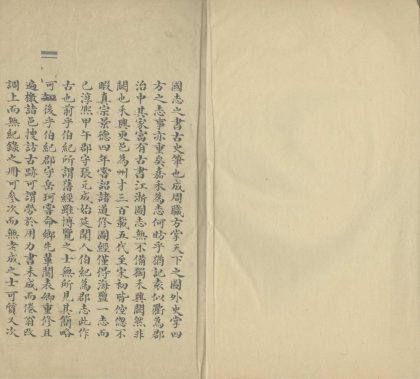 國志之書古史筆也成周職方掌天下之圖外史掌四
方之志事亦重矣嘉禾為志何昉乎猶記袁似衟為郡
治中其家富有古書江浙圖志無不備獨禾興闕然非
闕也禾興更邑為州才三百載五代至宋初皆倥傯不
暇真宗景德四年嘗詔諸道修圖經僅得海鹽一志而
已淳熙甲午郡守張元成始延聞人伯紀為郡志此作
古也前乎伯紀所謂舊經雖博覽之士無所見其簡略
可知後乎伯紀郡守岳珂嘗命鄉先輩關表卿重修且
遍檄諸邑搜訪古跡可謂勞於用力書未成而倦翁改
調上而無紀錄之冊可參次而無老成之士可質又次